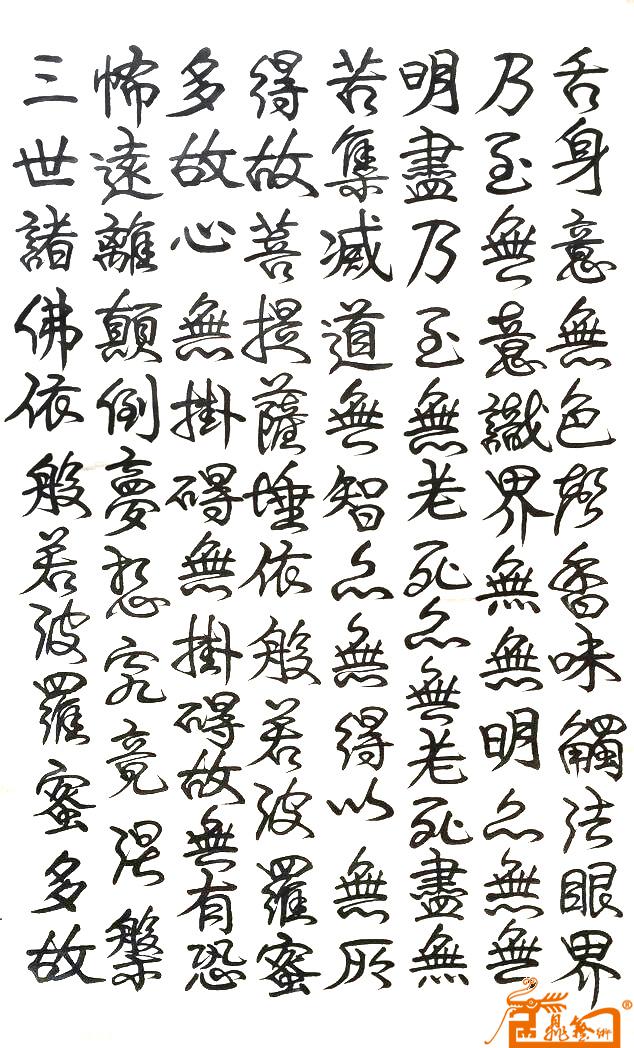 舌身意無色聲香味觸法眼界
乃至無意識界無無明亦無無
明盡乃至無老死亦無老死盡無
苦集滅道無智亦無得以無所
得故菩提薩埵依般若波羅蜜
多故心無掛碍無掛碍故無有恐
怖遠離顛倒夢想究竟涅槃
三世諸佛依般若波羅蜜多故